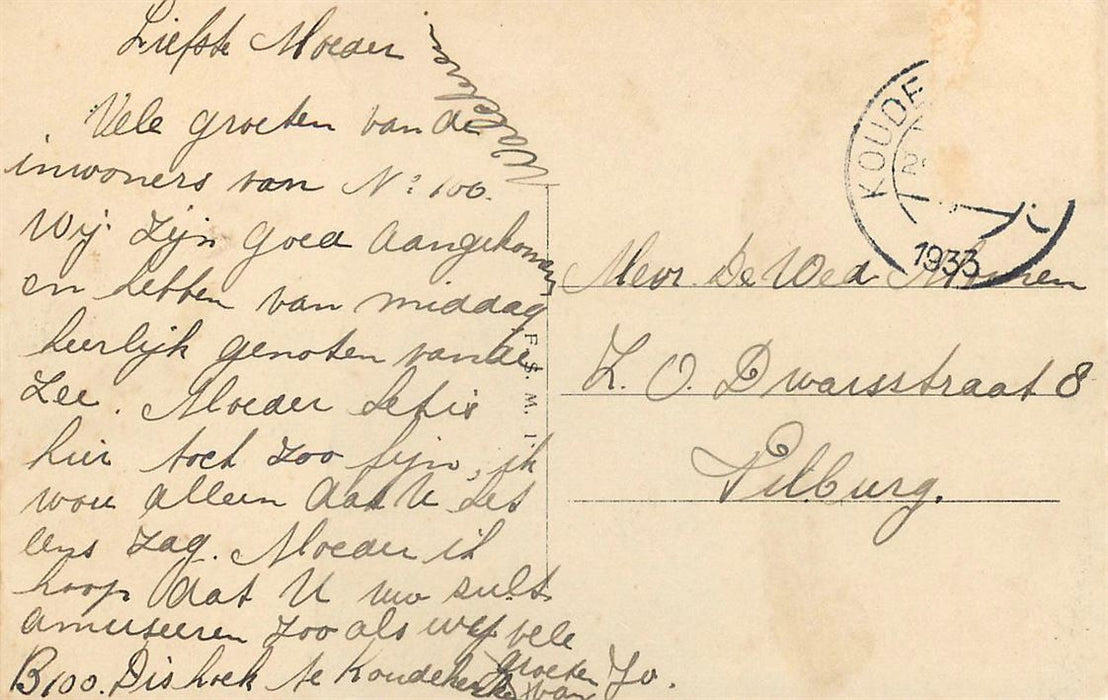 Liefste Moeder
Vele groeten van de
inwoners van No 100.
Wij zijn goed aangekomen
en hebben van middag
heerlijk genoten van de
Zee. Moeder het is
hier toch zoo fijn, ik
wou alleen dat U het
eens zag. Moeder ik
hoop dat U uw zult
amuseeren zoo als wij vele
groeten van Jo.
B100. Dishoek te Koudekerke
Walcheren
F. S. M. I.
KOUDE
1933
Mevr. De Wed
Z. O. Dwarsstraat 8
Tilburg.